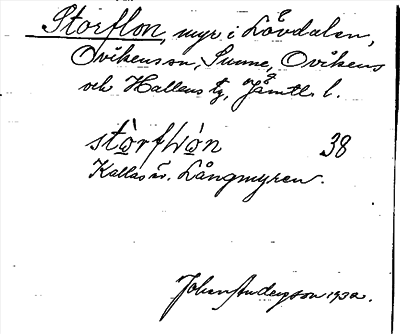 Storflon, myr i Lövdalen,
Ovikens sn, Sunne, Ovikens
och Hallens tg, Jämtl. l.
stòrfłòn 38
Kallas äv. Långmyren.
Johan Anderson 1932.